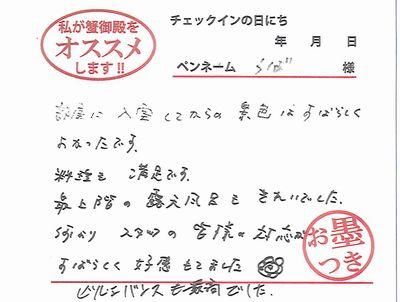 私が蟹御殿を
オススメ
します!!
チェックインの日にち
年 月 日
ペンネーム らば 様
部屋に入室してからの景色はすばらしく
よかったです。
料理も満足です。
最上階の露天風呂もきれいでした。
何より スタッフの皆様の対応が
すばらしく好感もてました
ビルエバンスも最高でした。
お墨つき